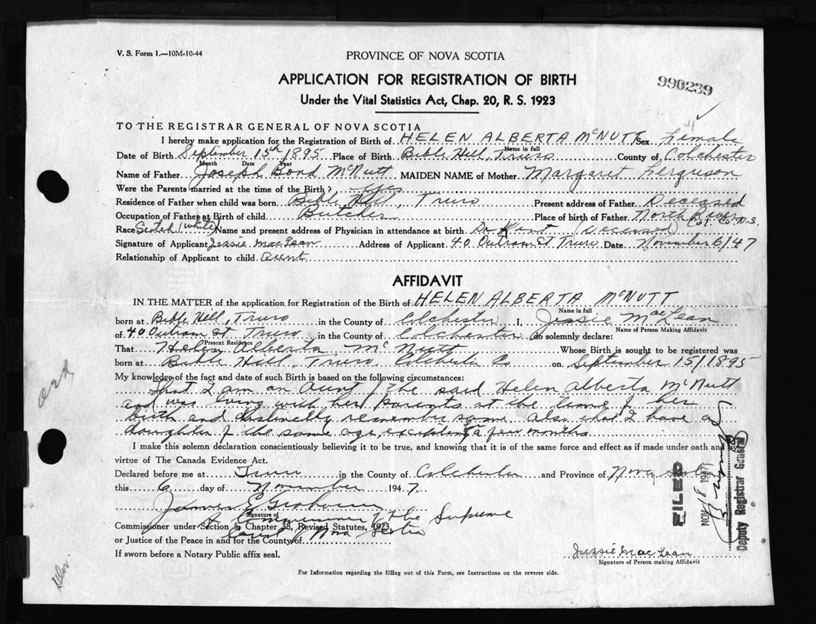 V. S. Form 1.—10M-10-44
PROVINCE OF NOVA SCOTIA
990239
APPLICATION FOR REGISTRATION OF BIRTH
Under the Vital Statistics Act, Chap. 20, R. S. 1923
TO THE REGISTRAR GENERAL OF NOVA SCOTIA
I hereby make application for the Registration of Birth of HELEN ALBERTA McNUTT Sex Female
Name in full
Date of Birth September 15th 1895 Place of Birth Bible Hill, Truro County of Colchester
Month Date Year
Name of Father Joseph Bond McNutt MAIDEN NAME of Mother Margaret Ferguson
Were the Parents married at the time of the Birth? yes
Residence of Father when child was born Bible Hill, Truro Present address of Father Deceased
Occupation of Father at Birth of child Butcher Place of birth of Father North River
Race Scotch (white) Name and present address of Physician in attendance at birth Dr Kent (Deceased) Col. Co. N.S.
Signature of Applicant Jessie MacLean Address of Applicant 40 Outram St Truro Date November 6/47
Relationship of Applicant to child Aunt
AFFIDAVIT
IN THE MATTER of the application for Registration of the Birth of HELEN ALBERTA McNUTT
Name in full
born at Bible Hill, Truro in the County of Colchester I, Jessie MacLean
Name of Person Making Affidavit
of 40 Outram St Truro in the County of Colchester do solemnly declare:
Present Residence
That Helen Alberta McNutt Whose Birth is sought to be registered was
born at Bible Hill, Truro, Colchester Co on September 15/1895
My knowledge of the fact and date of such Birth is based on the following circumstances:
That I am an Aunt of the said Helen Alberta McNutt
and was living with her parents at the time of her
birth and distinctly remember same. Also that I have a
daughter of the same age, excepting a few months
I make this solemn declaration conscientiously believing it to be true, and knowing that it is of the same force and effect as if made under oath and
virtue of The Canada Evidence Act.
Declared before me at Truro in the County of Colchester and Province of Nova Scotia
this 6 day of November 1947.
Signature of
A Commissioner of the Supreme
Commissioner under Section 5, Chapter 38, Revised Statutes, 1923
Court of Nova Scotia
or Justice of the Peace in and for the County of
If sworn before a Notary Public affix seal.
Jessie MacLean
Signature of Person making Affidavit
For Information regarding the filling out of this Form, see Instructions on the reverse side.
FILED
Deputy Registrar General